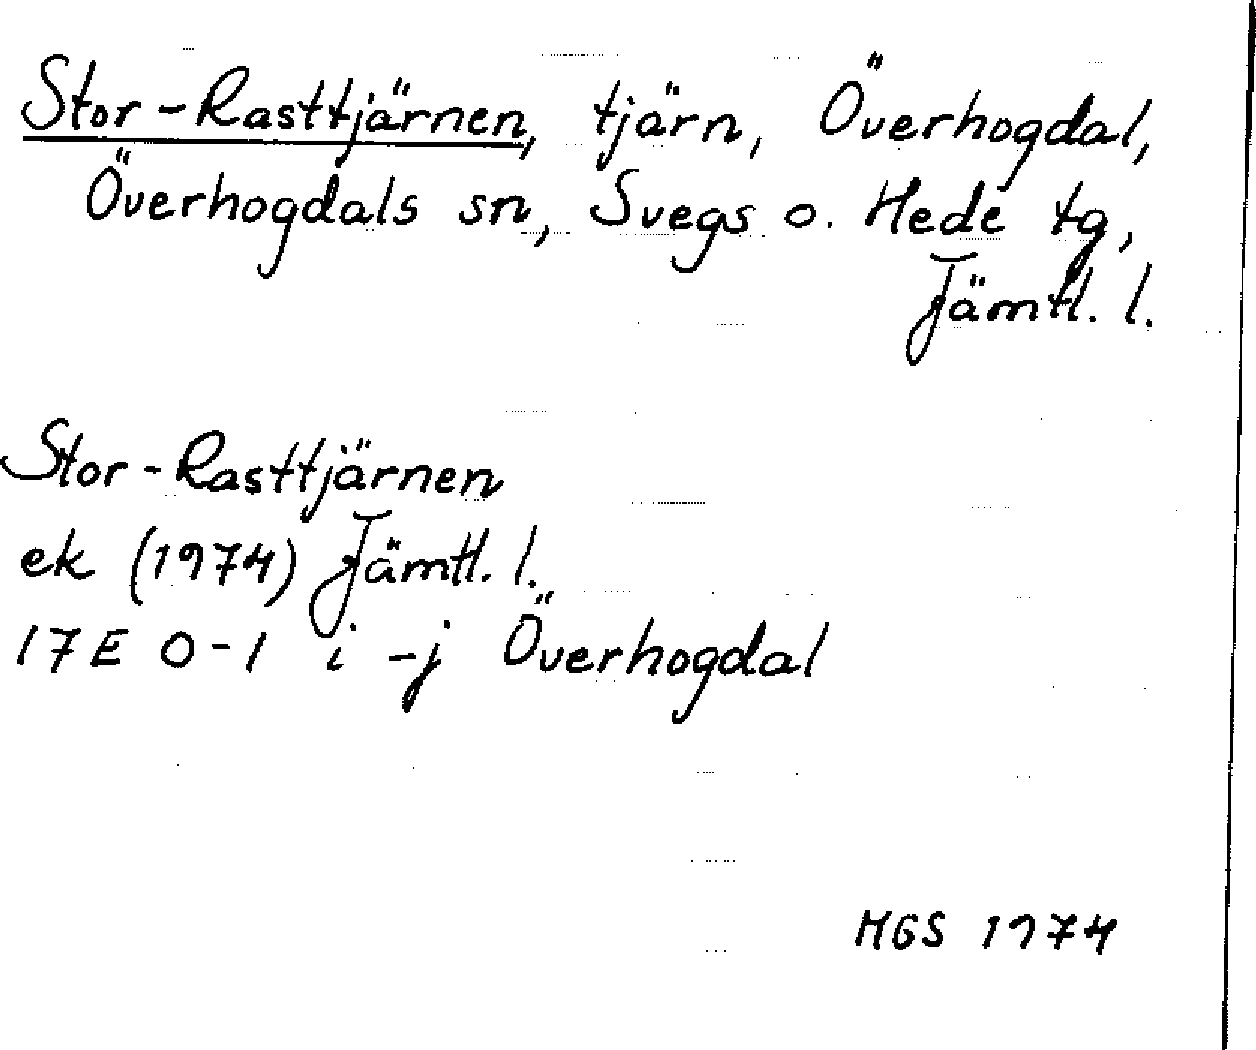 Stor-Rasttjärnen, tjärn, Överhogdal,
Överhogdals sn, Svegs o. Hede tg,
Jämtl. l.
Stor-Rasttjärnen
ek (1974) Jämtl. l.
17E 0-1 i-j Överhogdal
MGS 1974